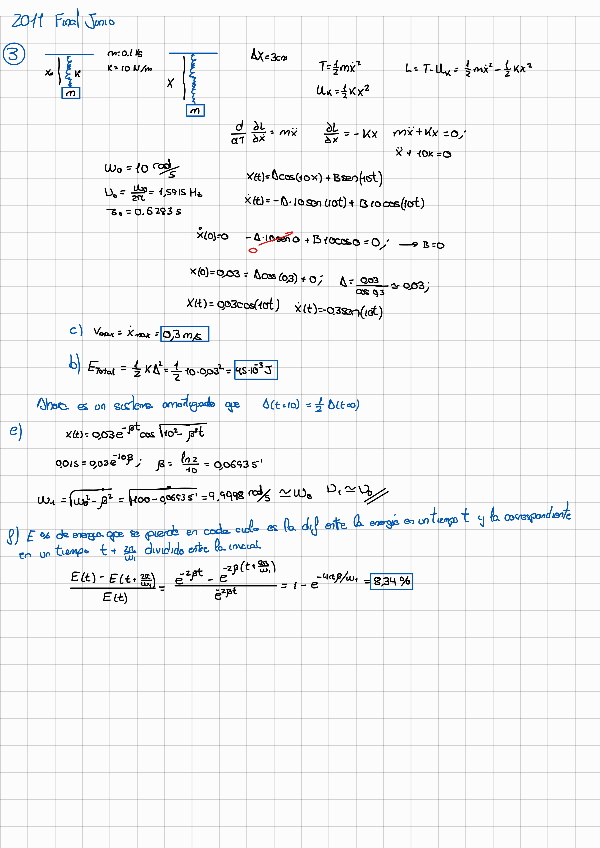 2011 Final Junio
3
m=0.1 kg
K=10 N/m
x₀ K
m
X
m
ΔX=3cm
T=½mẋ²
U_K=½Kx²
L=T-U_K=½mẋ²-½Kx²
d/dT ∂L/∂ẋ = mẍ ∂L/∂x = -Kx mẍ+Kx=0;
ẍ + 10K=0
ω₀ = 10 rad/s
υ₀ = ω₀/2π = 1,5915 Hz
τ₀ = 0.6283 s
x(t)=Acos(10x)+Bsen(10t)
ẋ(t)=-A·10sen(10t)+B10cos(10t)
ẋ(0)=0 -A·10sen0 + B10cos0=0; → B=0
0
x(0)=0,03 = Acos(0,3)+0; A= 0,03/cos 0,3 ≃ 0,03;
X(t)=0,03cos(10t) ẋ(t)=-0,3sen(10t)
c) Vmax = ẋmax = 0,3 m/s
b) ETotal = ½ KA² = ½ 10·0,03² = 4,5·10⁻³ J
Ahora es un sistema amortiguado que A(t=10) = ½ A(t=0)
e)
x(t)=0,03e^-βt cos √10²-β² t
0,015=0,03e^-10β; β = ln2/10 = 0,0693 s⁻¹
ω₁ = √ω₀²-β² = √100-0,0693² = 9,9998 rad/s ≃ω₀ υ₁≃υ₀
f) E es de energía que se pierde en cada ciclo es la dif entre la energía en un tiempo t y la correspondiente
en un tiempo t + 2π/ω₁ dividido entre la inicial.
E(t) - E(t+2π/ω₁) / E(t) = e^-2βt - e^-2β(t+2π/ω₁) / e^-2βt = 1 - e^-4πβ/ω₁ = 8,34 %